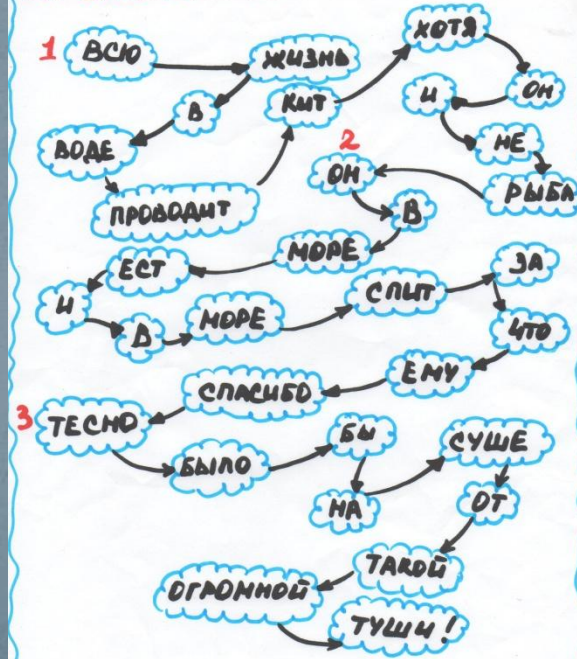 1 ВСЮ ЖИЗНЬ
В ВОДЕ
ПРОВОДИТ КИТ
ХОТЯ ОН
И НЕ РЫБА
2 ОН В МОРЕ
ЕСТ И В МОРЕ
СПИТ ЗА ЧТО
ЕМУ СПАСИБО
3 ТЕСНО БЫЛО БЫ
НА СУШЕ ОТ
ТАКОЙ ОГРОМНОЙ
ТУШИ!